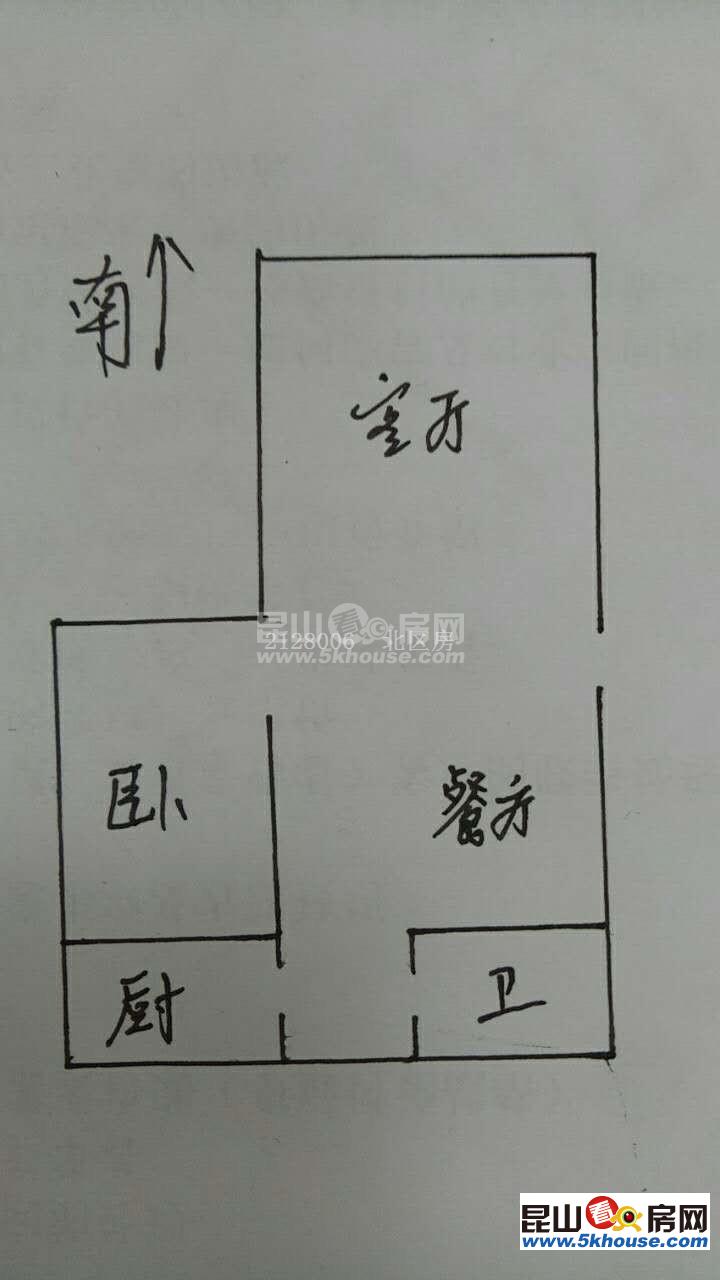 南
客厅
昆山看房网
2128006 北区房
www.5khouse.com
卧
餐厅
厨
卫
昆山看房网
www.5khouse.com